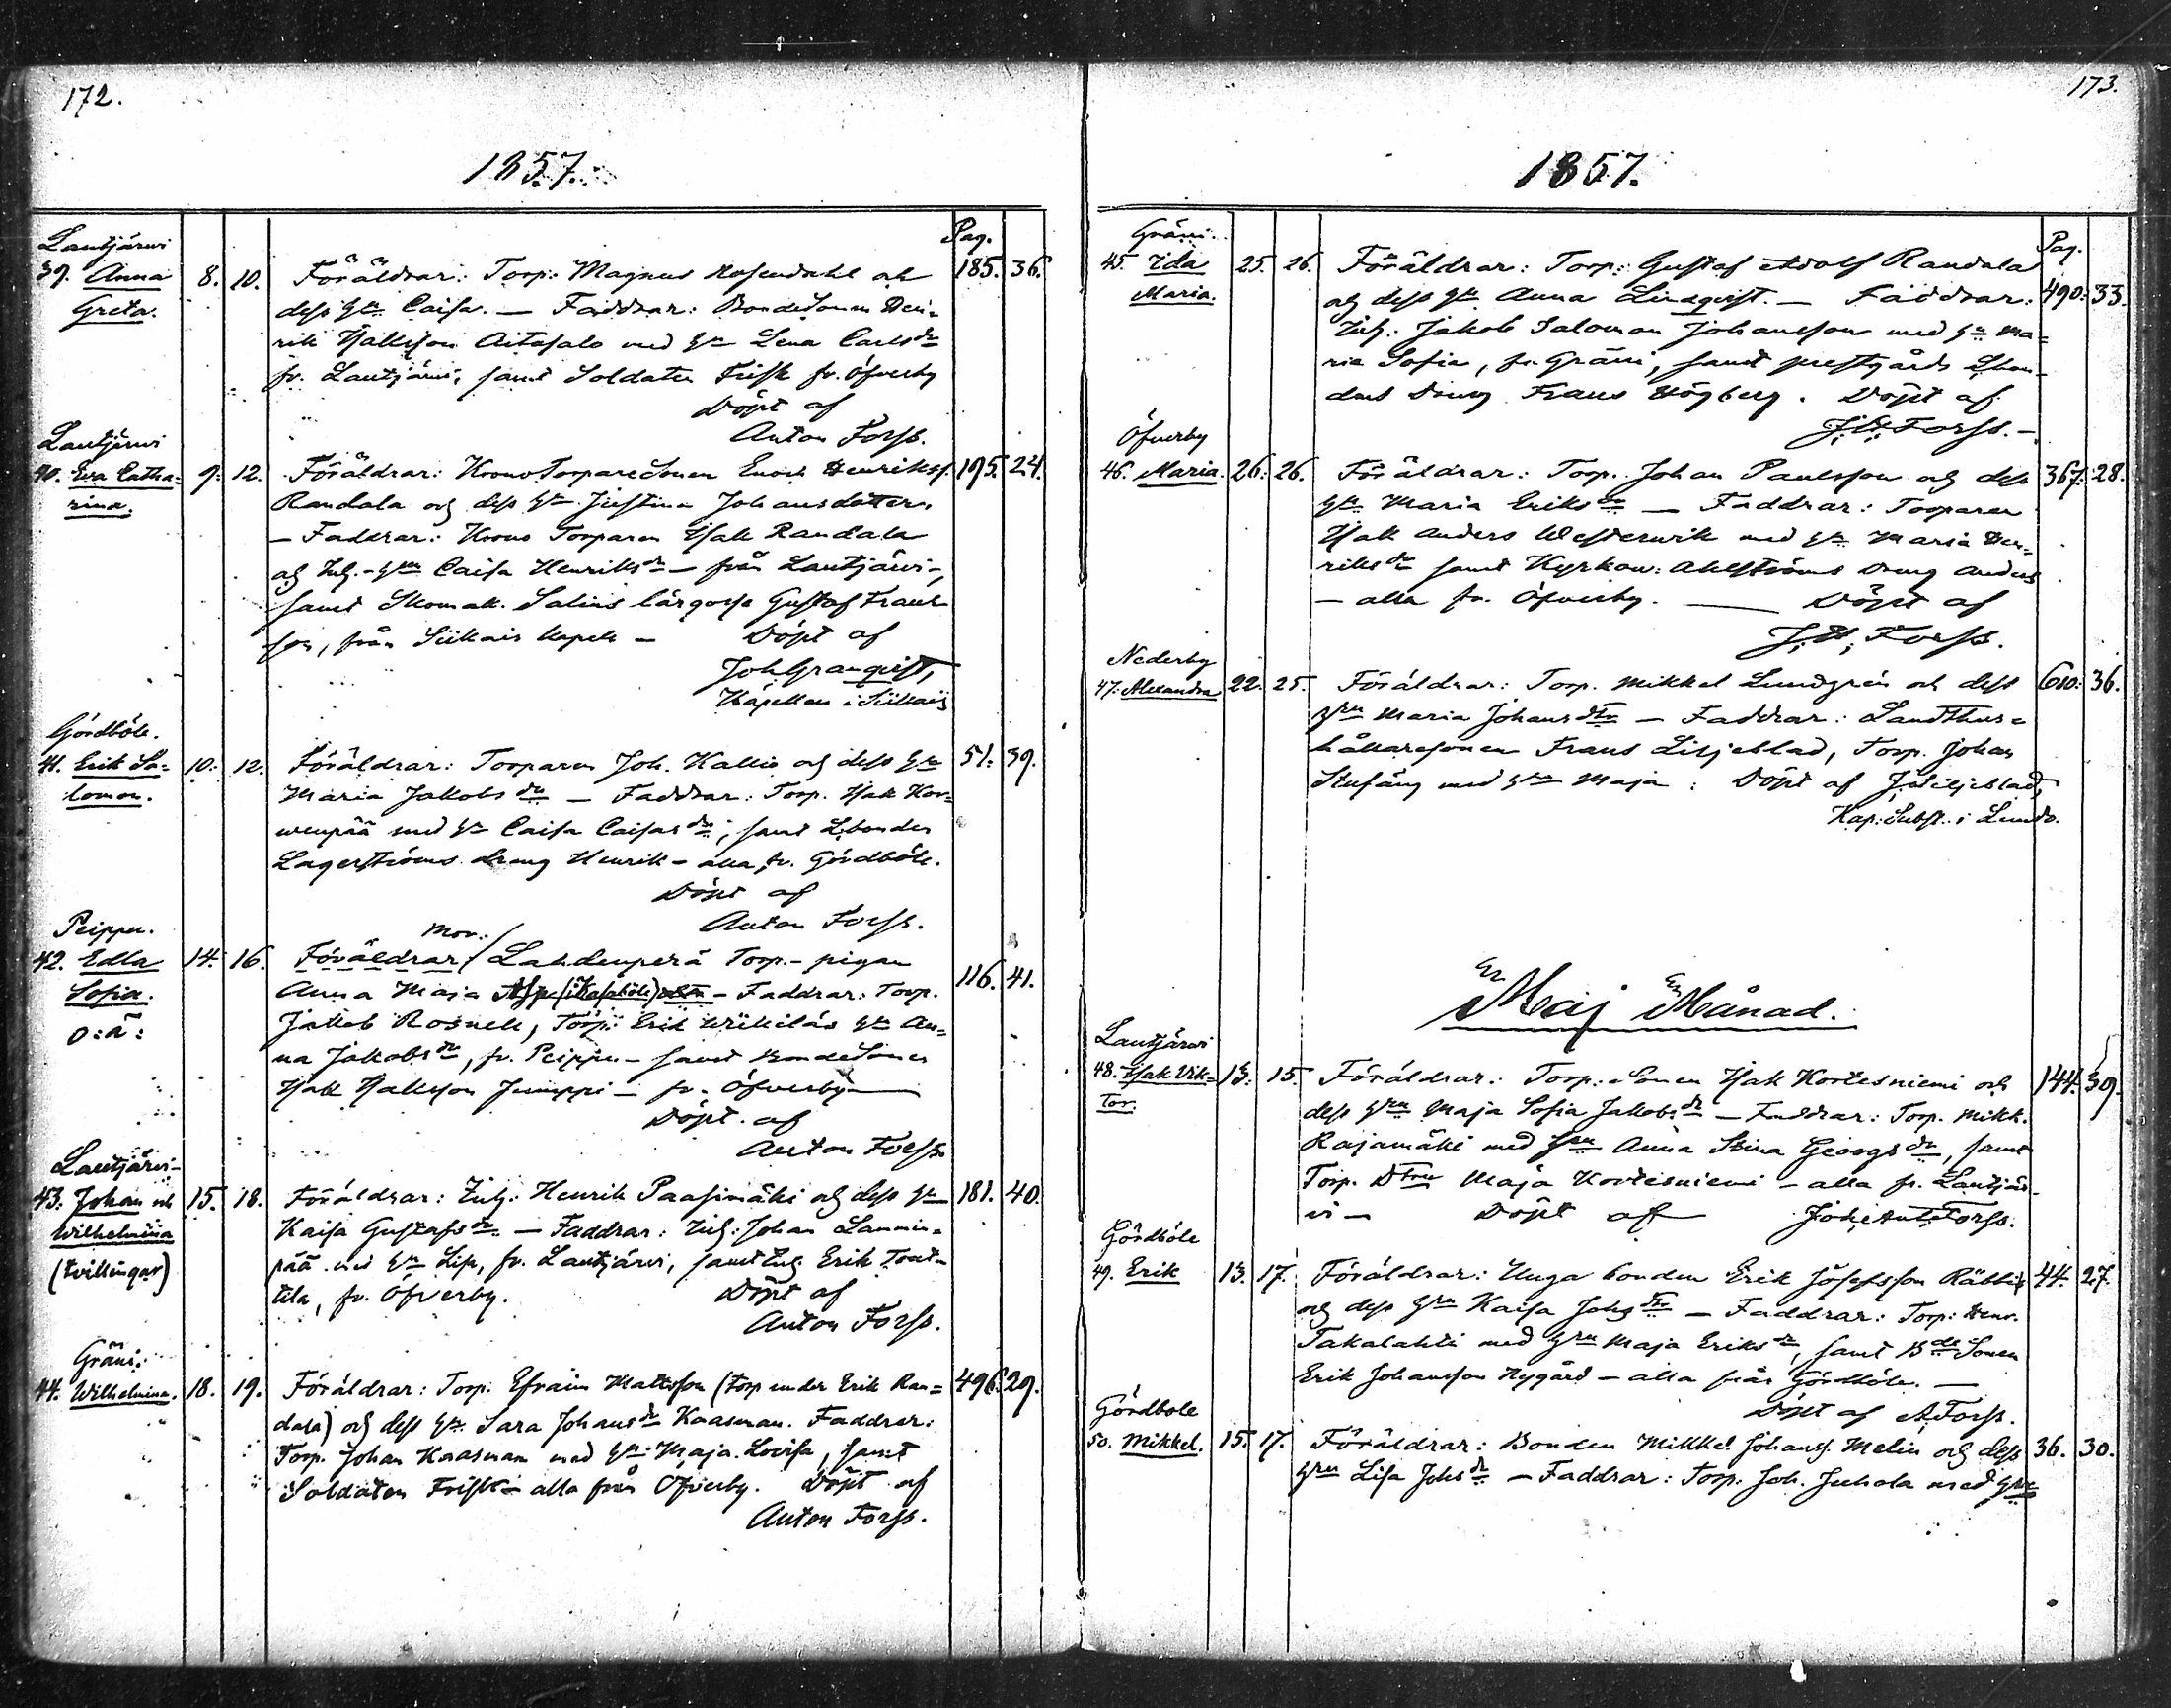 172.
1857.
Pag.
Lautjärwi
39. Anna
Greta.
8. 10. Föräldrar: Torp: Magnus Rosendahl och 185. 36.
dess h:u Caisa. — Faddrar: BondeSonen Hen-
rik Isaksson Aitasalo med h:u Lena Carlsdr
fr. Lautjärwi, samt Soldaten Frisk fr. Öfverby
Döpt af
Anton Forss.
Lautjärwi
40. Eva Catha-
rina.
9. 12. Föräldrar: KronoTorpareSonen Enoch Henrikss. 195. 24.
Randala och dess h:u Justina Johansdotter.
— Faddrar: Krono Torparen Isak Randala
och Inh.-h:un Caisa Henriksdr — från Lautjärwi,
samt Skomak. Salins lärgosse Gustaf Frans-
son, från Siikais kapell — Döpt af
Joh Granqvist,
Kapellan i Siikais
Gördböle.
41. Erik Sa-
lomon.
10. 12. Föräldrar: Torparen Joh. Kallio och dess h:u 51. 39.
Maria Jakobsdr — Faddrar: Torp. Isak Kor-
wenpää med h:u Caisa Caisasdr, samt Lbonden
Lagerströms dreng Henrik — alla fr. Gördböle.
Döpt af
Anton Forss.
Peippu.
42. Edla
Sofia.
o: ä:
Mor:
14. 16. Föräldrar / Lahdenperä Torp.- pigan
Anna Maja — Faddrar: Torp. 116. 41.
Jakob Rosnell, Torp: Erik Wikiläs h:u An-
na Jakobsdr, fr. Peippu — samt BondeSonen
Isak Isaksson Jumppi — fr. Öfverby —
Döpt af
Anton Forss
Lautjärwi
43. Johan och
Wilhelmina
(tvillingar)
15. 18. Föräldrar: Inh: Henrik Paasimäki och dess h:u 181. 40.
Kaisa Gustafsdr. — Faddrar: Inh: Johan Lammin-
pää med h:u Lisa, fr. Lautjärwi, samt Inh. Erik Tout-
tila, fr. Öfverby. Döpt af
Anton Forss.
Gräsi:
44. Wilhelmina.
18. 19. Föräldrar: Torp. Efraim Mattsson (torp under Erik Ran- 496. 29.
dala) och dess h:u Sara Johansdr Kaasman. Faddrar:
Torp. Johan Kaasman med h:u Maja Lovisa, samt
Soldaten Frisk — alla från Öfverby. Döpt af
Anton Forss.
173.
1857.
Pag.
Gräsi.
45. Ida
Maria.
25. 26. Föräldrar: Torp: Gustaf Adolf Randala
och dess h:u Anna Lindqvist. — Faddrar: 490. 33.
Inh: Jakob Salomon Johansson med h:u Ma-
ria Sofia, fr. Gräsi, samt prestgårds Lbon-
dens Dreng Frans Högberg. Döpt af
J.H. Forss. —
Öfverby
46. Maria.
26. 26. Föräldrar: Torp. Johan Paulsson och dess 367. 28.
h:u Maria Eriksdr — Faddrar: Torparen
Isak Anders Westerwik med h:u Maria Hen-
riksdr samt Kyrkow: Ahlströms dreng Anders
— alla fr. Öfverby. — Döpt af
J.H. Forss.
Nederby
47. Alexandra
22. 25. Föräldrar: Torp. Mikkel Lundgrén och dess 610. 36.
h:ru Maria Johansdtr — Faddrar: Landthus-
hållaresonen Frans Liljeblad, Torp. Johan
Stufäng med h:u Maja: Döpt af J. Liljeblad,
Kap: Subst. i Lundo.
Maij Månad.
Lautjärwi
48. Isak Vik-
tor.
13. 15. Föräldrar: Torp:-Sonen Isak Kortesniemi och 144. 39.
dess h:ru Maja Sofia Jakobsdr — Faddrar: Torp. Mikk.
Rajamäki med h:ru Anna Stina Georgsdr, samt
Torp. Dtren Maja Kortesniemi — alla fr. Lautjär-
wi — Döpt af Joh: Ant: Forss.
Gördböle
49. Erik
13. 17. Föräldrar: Unga bonden Erik Josefsson Räbbis 44. 27.
och dess h:ru Kaisa Johsdtr — Faddrar: Torp: Henr.
Takalahti med h:ru Maja Eriksdr, samt BdeSonen
Erik Johansson Nygård — alla från Gördböle. —
Döpt af A. Forss.
Gördbole
50. Mikkel.
15. 17. Föräldrar: Bonden Mikkel Johanss. Melin och dess 36. 30.
h:ru Lisa Johsdr — Faddrar: Torp. Joh. Juhola med h:ru